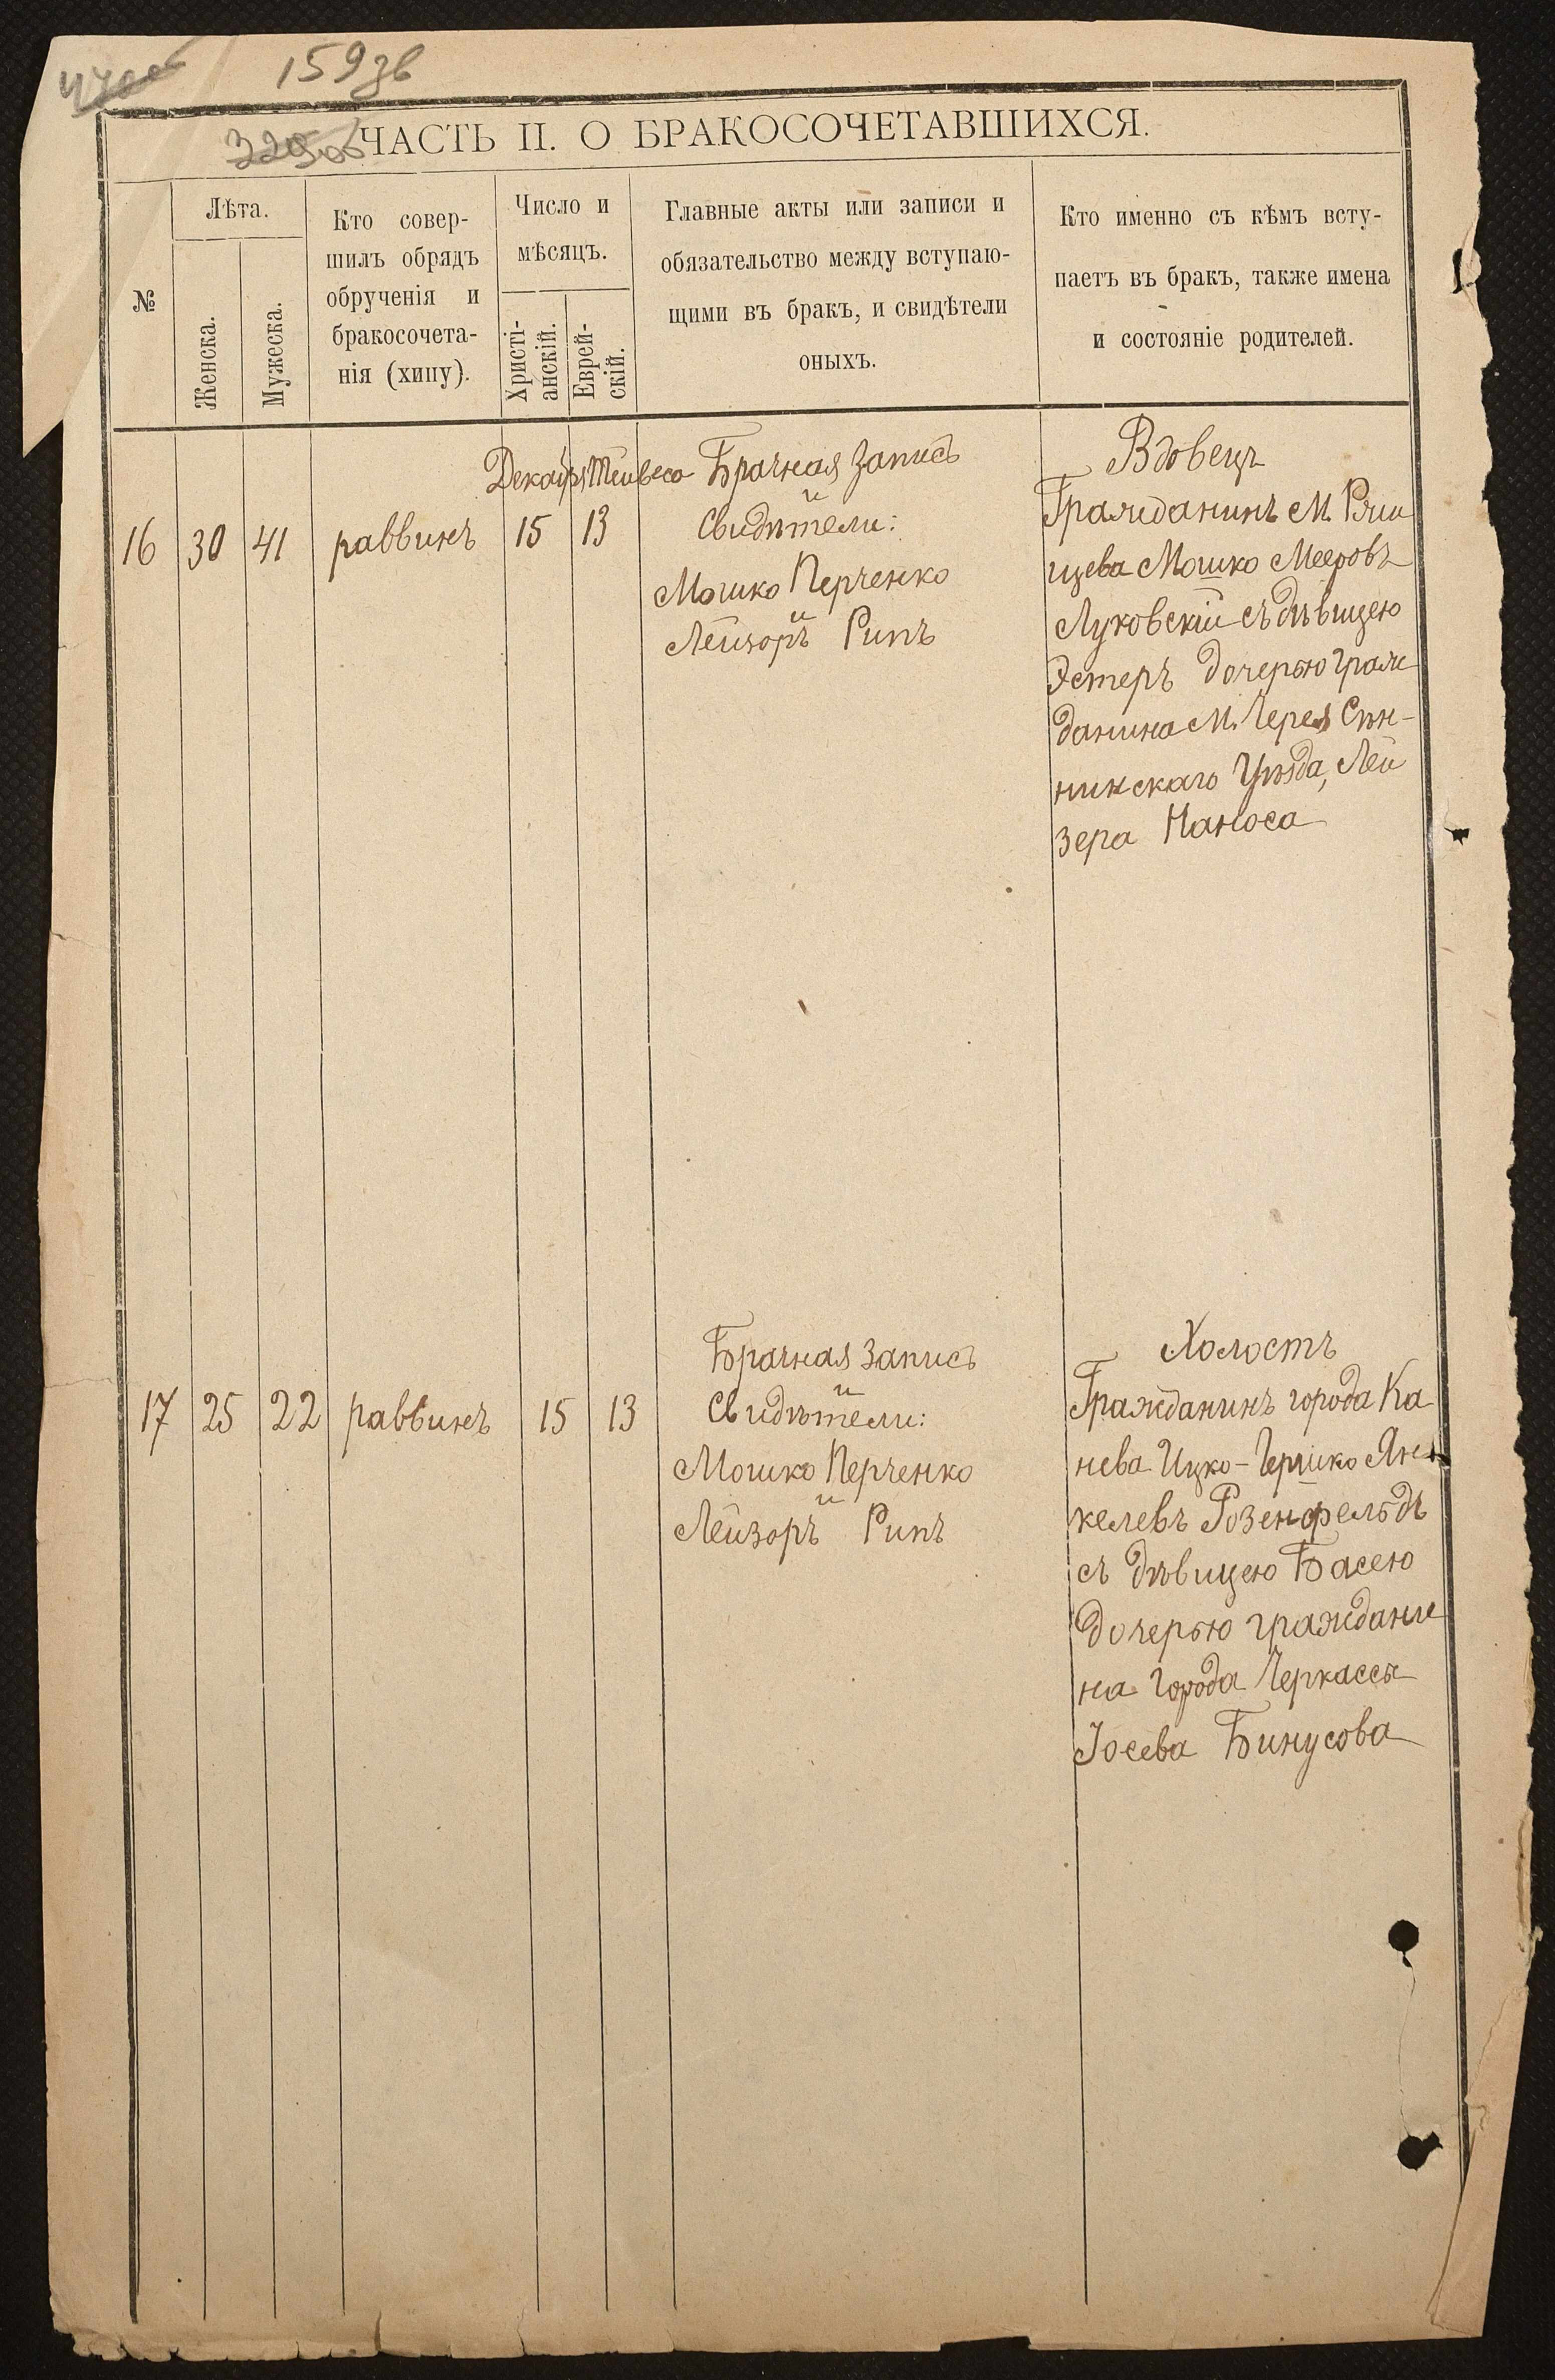 159зв
ЧАСТЬ II. О БРАКОСОЧЕТАВШИХСЯ.
№
Лѣта.
Женска.
Мужеска.
Кто совер-
шилъ обрядъ
обрученія и
бракосочета-
нія (хипу).
Число и
мѣсяцъ.
Христі-
анскій.
Еврей-
скій.
Главные акты или записи и
обязательство между вступаю-
щими въ бракъ, и свидѣтели
оныхъ.
Кто именно съ кѣмъ всту-
паетъ въ бракъ, также имена
и состояніе родителей.
16 30 41 раввинъ
15 13
Брачная запись
и
Свидѣтели:
Мошко Перченко
и
Лейзоръ Рипъ
Вдовецъ
Гражданинъ М. Ржи
щева Мошко Мееровъ
Луковскій съ дѣвицею
Эстеръ дочерью граж
данина М. Черея Сѣн-
нинскаго Уѣзда, Лей
зера Маноса
17 25 22 раввинъ 15 13
Брачная запись
и
Свидѣтели:
Мошко Перченко
и
Лейзоръ Рипъ
Холостъ
Гражданинъ города Ка
нева Ицко-Гершко Ян
келевъ Розенфельдъ
съ дѣвицею Басею
дочерью граждани
на города Черкассы
Іосева Бинусова